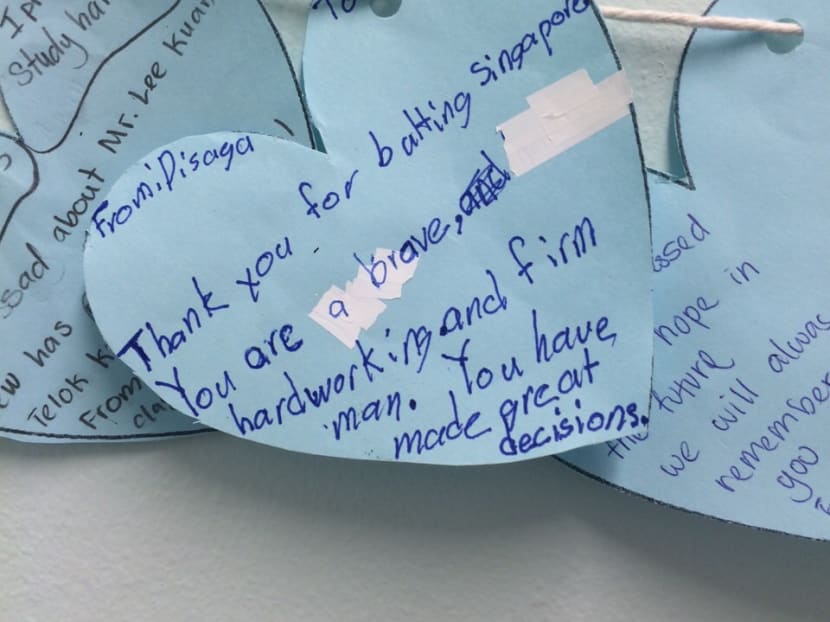 Study har
sad about Mr. Lee Kuan
ew has
Telok K
From
cla
To
From:Disaga
Thank you for batting Singapore
You are a brave,
hardworking and firm
man. You have
made great
decisions.
ssed
hope in
the future
we will alway
remember
you